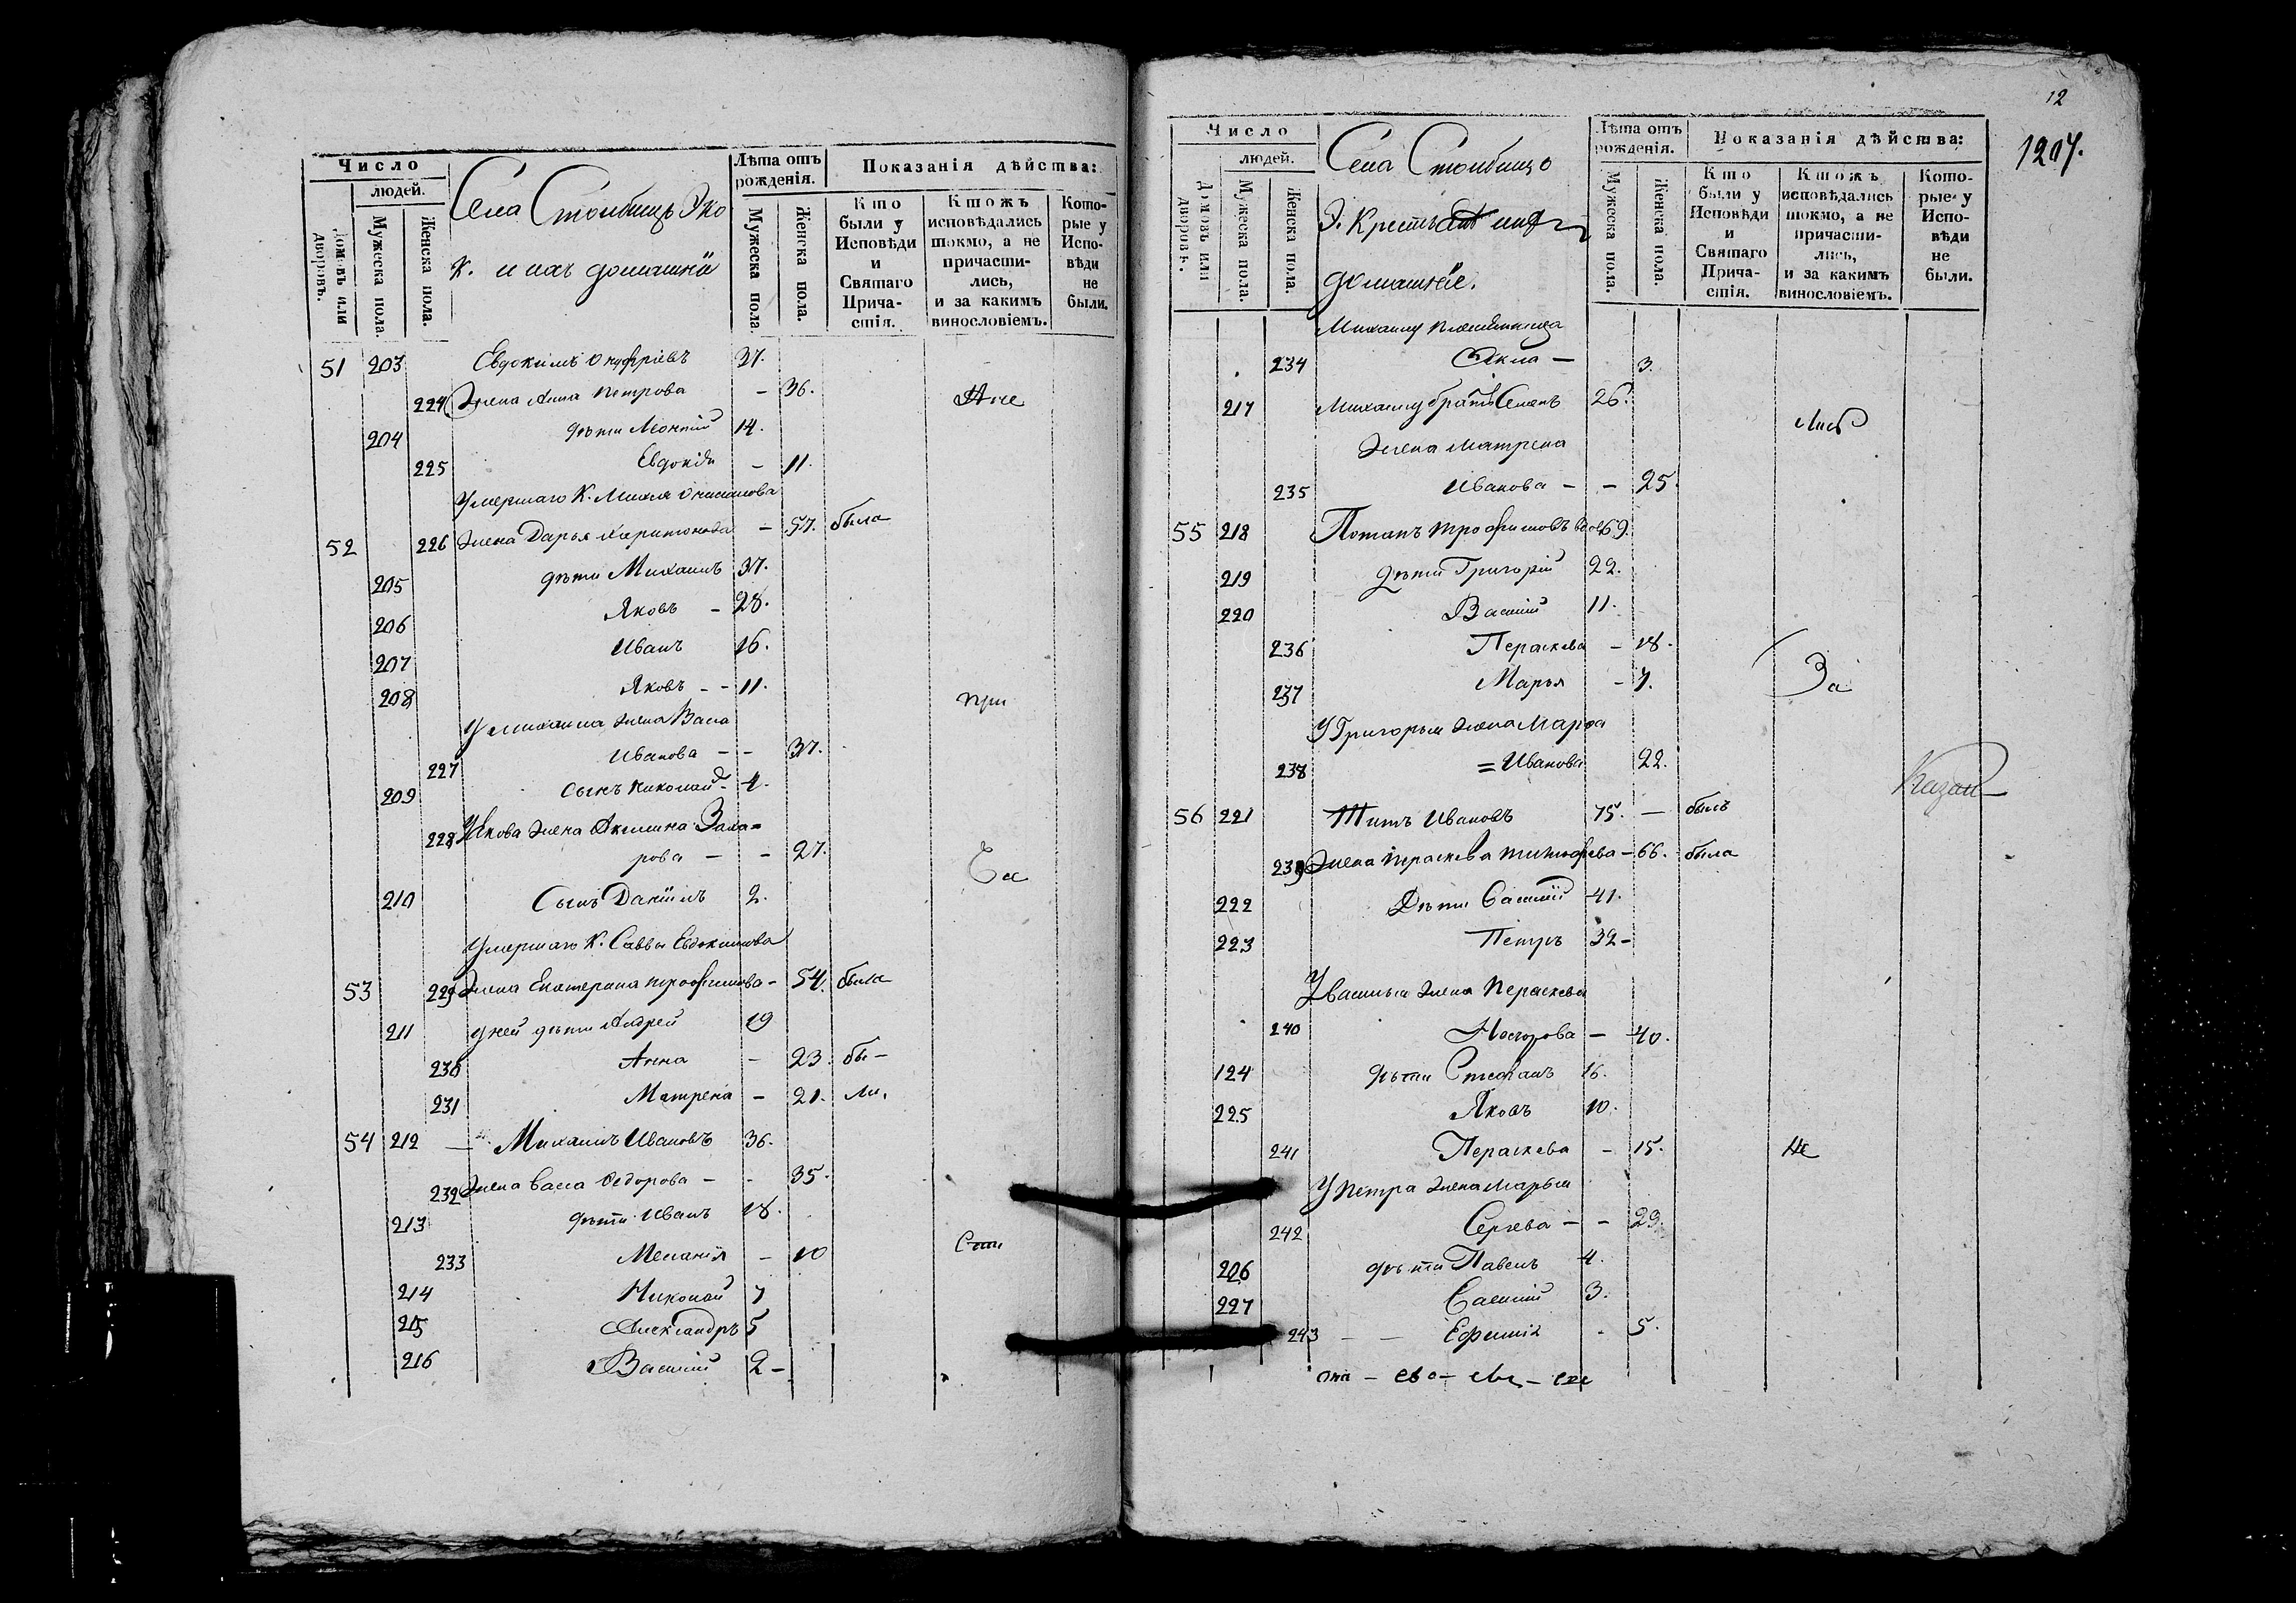 Число
людей.
Домовъ или дворовъ.
Мужеска пола.
Женска пола.
Села Столбищъ Эко
К. и ихъ домашніи
Лѣта отъ рожденія.
Мужеска пола.
Женска пола.
Показанія дѣйства:
Кто были у Исповѣди и Святаго Прича-стія.
Ктожъ исповѣдались токмо, а не причасти-лись, и за какимъ винословіемъ.
Кото-рые у Испо-вѣди не были.
51 203 Евдокимъ Онуфріевъ 37.
224 Жена Анна Петрова - 36. не
204 дѣти Леонтій 14.
225 Евдокія - 11.
Умершаго К.
52 226 жена Дарья Харитонова - 57. была
205 дѣти Михаилъ 37.
206 Яковъ - 28.
207 Иванъ 16.
208 Яковъ - - 11. при
У Михаила жена Васса
227 Иванова - - 37.
209 сынъ Николай - 4.
228 У Якова жена Акилина Заха=
рова - - 27. Ча
210 Сынъ Даніилъ 2.
Умершаго К. Саввы Евдокимова
53 229 жена Екатерина Трофимова - 54. была
211 у ней дѣти Андрей 19
230 Анна - 23. бы-
231 Матрена - 21. ли,
54 212 Михаилъ Ивановъ 36.
232 жена Васса Федорова - - 35.
213 дѣти Иванъ 18.
233 Меланія - 10 сти
214 Николай 7
215 Александръ 5
216 Василій 2 -
12
1207.
Число
людей.
Домовъ или дворовъ.
Мужеска пола.
Женска пола.
Села Столбищо
Э. Крестьяне и ихъ
домашніе.
Лѣта отъ рожденія.
Мужеска пола.
Женска пола.
Показанія дѣйства:
Кто были у Исповѣди и Святаго Прича-стія.
Ктожъ исповѣдались токмо, а не причасти-лись, и за какимъ винословіемъ.
Кото-рые у Испо-вѣди не были.
Михаилу племянница
234 Фекла - 3.
217 Михаилу братъ Семенъ 26. лись
Жена Матрена
235 Иванова - - 25.
55 218 Потапъ Трофимовъ вдов. 69.
219 дѣти Григорій 22.
220 Василій 11.
236 Параскева - 18.
237 Марья - 7. За
У Григорья жена Марфа
238 = Иванова 22.
Казан-
56 221 Титъ Ивановъ 75. — былъ
239 Жена Параскева Тимофеева - 66. была
222 Дѣти Василій 41.
223 Петръ 32-
У Василья жена Параскева
240 Несторова - 40.
124 дѣти Стефанъ 16.
225 Яковъ 10.
241 Параскева - 15. не
У Петра жена Марья
242 Сергѣева - - 29.
226 дѣти Павелъ 4.
227 Василій 3.
243 - - Ефимія - 5.